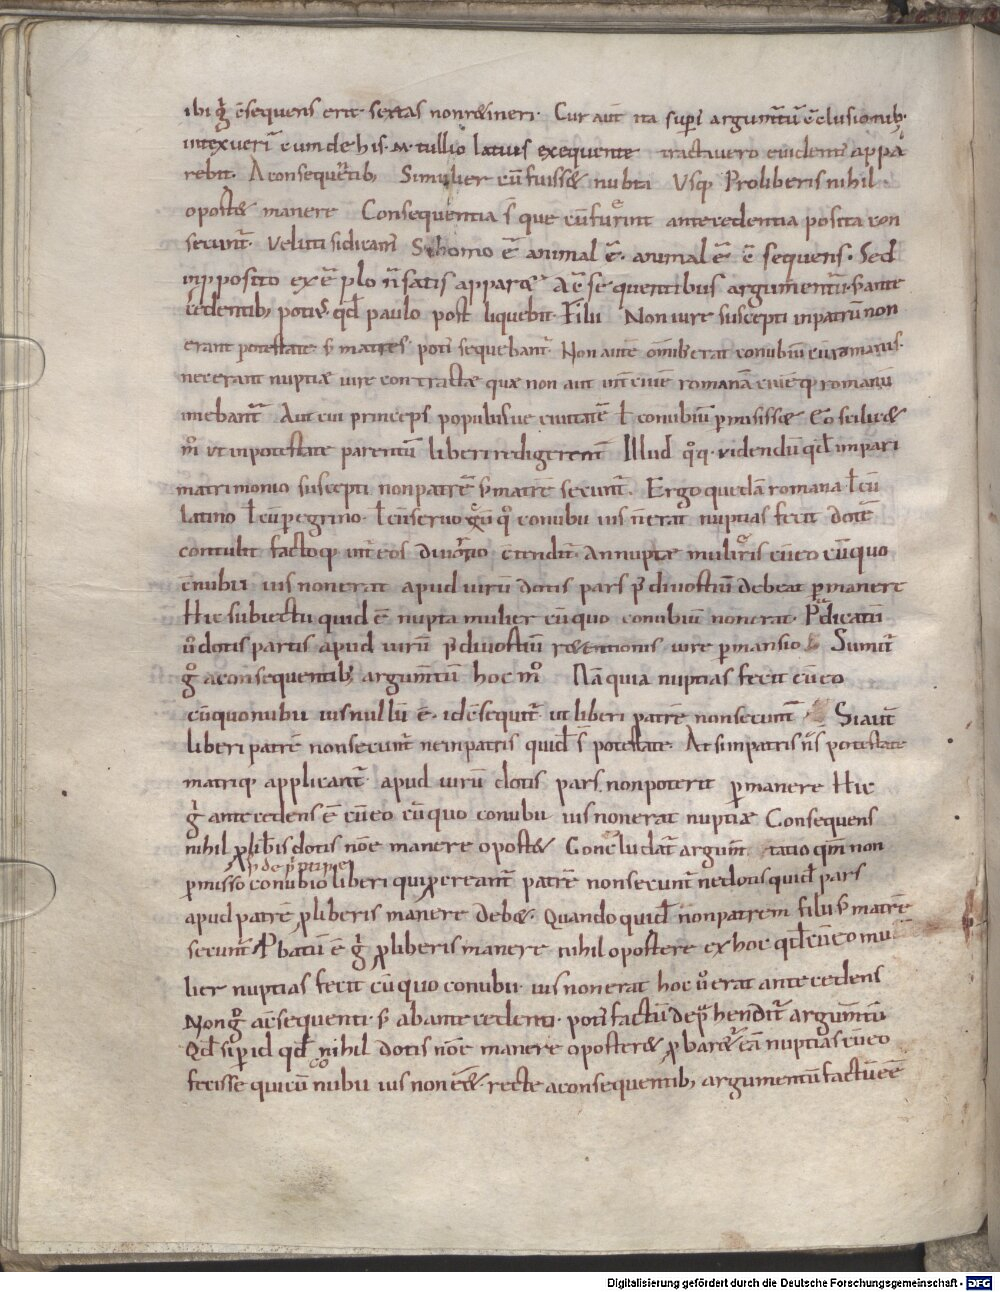 ibi g̊ c̄sequens erit sextas non retineri. Cur aut̄ ita superi argum̄tū c̄clusionib;
intexuerī cum de his. M. tullio latius exequente tractavero evidenti appa
rebit. A consequētib; Si mulier cū fuisset nubti Usq; Pro liberis nihil
oportet manere Consequentia s̄ que cū fuerint antecedentia posita con
secunt̄. Veluti si dicam̄ Si homo ē animal ē. animal ē c̄sequens. Sed
in p̄posito exēplo n̄ satis apparet A c̄sequentibus argumentū s; ante
cedentib; potius. qd̄ paulo post liquebit. Filii Non iure suscepti in patrū non
erant potestate s; matres poti sequebant̄. Non autē omīb; erat conubiū cū romanis.
nec erant nuptiæ iure contractæ quæ non aut int̄ civē romanā civēq; romanū
iniebant̄ Aut cui princeps populusve civitatē ł conubiū p̄misisset Eo scilicet
m̊ ut in potestate parentū liberi redigerent̄ Illud q̊q. videndū qd̄ impari
matrimonio suscepti non patrē s; matrē secunt̄. Ergo quedā romana ł cū
latino ł cū peregrino. ł cū servo cū q̊ conubii ius n̄ erat nuptias fecit dotē
contulit factoq; int̄ eos divortio c̄tendit̄. An nuptæ mulieris cū eo cū quo
c̄nubii ius non erat apud virū dotis pars p̄ divortiū debeat p̄manere
Hic subiectū quid ē nupta mulier cū quo conubiū non erat. P̄dicatū
ů dotis partis apud virū p̄ divortiū retentionis iure p̄mansio Sumit̄
g̊ a consequentib; argum̄tū hoc m̊ Nā quia nuptias fecit cū eo
cū quo nubii ius nullū ē. id c̄sequit̄. ut liberi patrē non secunt̄ Si aut̄
liberi patrē non secunt̄ nec in patris quid s̄ potestate. At si in patris n̄ s̄ potestate
matriq; applicant̄ apud virū dotis pars non poterit p̄manere Hic
g̊ antecedens ē cū eo cū quo conubii ius non erat nuptiæ Consequens
nihil p̄ lib̄is dotis nōe manere oportet Concludat̄ argum̄tatio qm̄ non
p̄misso conubio liberi qui p̄creant̄ patrē non secunt̄ ne dotis quid pars
apud patrē p̄ liberis manere debet. Quando quid̄ non patrem filii s; matrē
secunt̄ P̄batū ē g̊ p̄ liberis manere nihil oportere ex hoc qd̄ cū eo mu
lier nuptias fecit cū quo conubii ius non erat hoc ů erat antecedens
Non g̊ a c̄sequenti s; ab antecedenti. poti factū dep̄hendit̄ argum̄tū
Qd̄ si p̄ id qd̄ nihil dotis nōe manere oporteret p̄baret̄ eā nuptias cū eo
fecisse qui cū conubii ius non eēt. recte a consequentib; argumentū factū eē